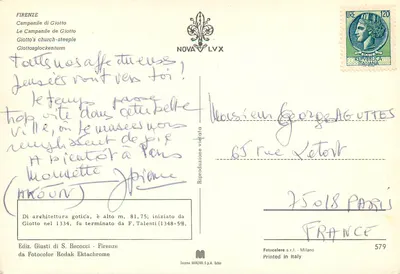 FIRENZE
Campanile di Giotto
Le Campanile de Giotto
Giotto's church-steeple
Giottosglockenturm
NOVA LVX
120
Toutes nos affectueuses
pensées vont vers toi!
Le temps passe
trop vite dans cette belle
ville, où les musées nous
remplissent de joie
A bientôt à Paris
Mounette
(AKOUN)
Monsieur Georges AGUTTES
65 rue
75018 PARIS
FRANCE
Di architettura gotica, è alto m. 81,75, iniziato da
Giotto nel 1334, fu terminato da F. Talenti (1348-59).
Ediz. Giusti di S. Becocci - Firenze
da Fotocolor Kodak Ektachrome
Riproduzione vietata
Fotocelere s.r.l. - Milano
Printed in Italy
579